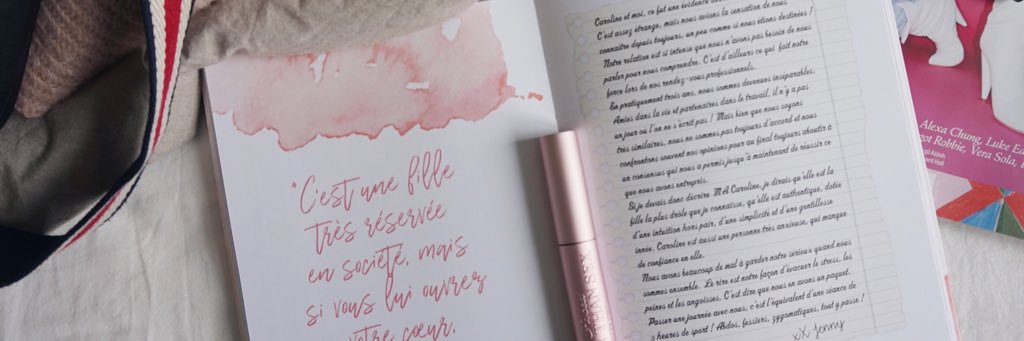 "C'est une fille
très réservée
en société, mais
si vous lui ouvrez
votre cœur,
Caroline et moi, ce fut une évidence
C'est assez étrange, mais nous avions la sensation de nous
connaitre depuis toujours, un peu comme si nous étions destinées !
Notre relation est si intense que nous n'avons pas besoin de nous
parler pour nous comprendre. C'est d'ailleurs ce qui fait notre
force lors de nos rendez-vous professionnels.
En pratiquement trois ans, nous sommes devenues inséparables.
Amies dans la vie et partenaires dans le travail, il n'y a pas
un jour où l'on ne s'écrit pas ! Mais bien que nous soyons
très similaires, nous ne sommes pas toujours d'accord et nous
confrontons souvent nos opinions pour au final toujours aboutir à
un consensus qui nous a permis jusqu'à maintenant de réussir ce
que nous avons entrepris.
Si je devais donc décrire MA Caroline, je dirais qu'elle est la
fille la plus drôle que je connaisse, qu'elle est authentique, dotée
d'une intuition hors pair, d'une simplicité et d'une gentillesse
innée. Caroline est aussi une personne très anxieuse, qui manque
de confiance en elle.
Nous avons beaucoup de mal à garder notre sérieux quand nous
sommes ensemble. Le rire est notre façon d'évacuer le stress, les
peines et les angoisses. C'est dire que nous en avons un paquet.
Passer une journée avec nous, c'est l'équivalent d'une séance de
3 heures de sport ! Abdos, fessiers, zygomatiques, tout y passe !
xX Jenny
Alexa Chung, Luke
Robbie, Vera Sola,